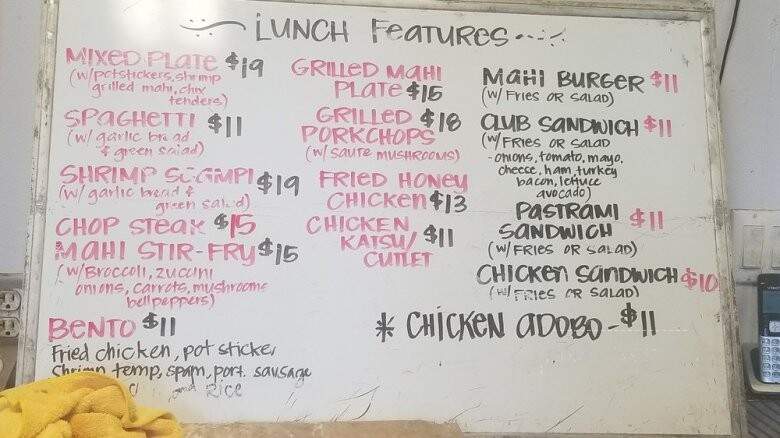 LUNCH FEATURES
MIXED PLATE $19
(w/potstickers, shrimp
grilled mahi, chix
tenders)
SPAGHETTI $11
(w/ garlic bread
& green salad)
SHRIMP SCAMPI $19
(w/ garlic bread &
green salad)
CHOP STEAK $15
MAHI STIR-FRY $15
(w/Broccoli, zuccini
onions, carrots, mushrooms
bellpeppers)
BENTO $11
Fried chicken, pot sticker
Shrimp temp, spam, port. sausage
and Rice
GRILLED MAHI
PLATE $15
GRILLED $18
PORKCHOPS
(w/ SAUTE MUSHROOMS)
FRIED HONEY
CHICKEN $13
CHICKEN $11
KATSU/
CUTLET
MAHI BURGER $11
(w/ FRIES OR SALAD)
CLUB SANDWICH $11
(w/ FRIES OR SALAD
-onions, tomato, mayo,
cheese, ham, turkey
bacon, lettuce
avocado)
PASTRAMI $11
SANDWICH
(w/ FRIES OR SALAD)
CHICKEN SANDWICH $10
(w/ FRIES OR SALAD)
* CHICKEN ADOBO - $11